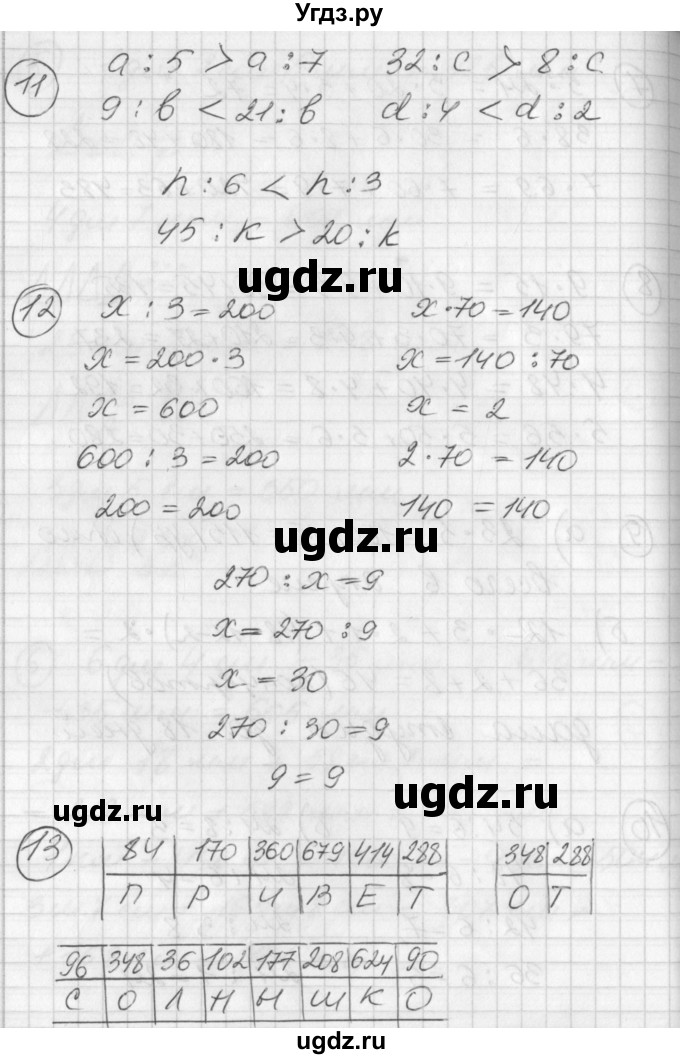 Угдз.ру
11 a : 5 > a : 7 32 : c > 8 : c
9 : b < 21 : b d : 4 < d : 2
n : 6 < n : 3
45 : k > 20 : k
ugdz.ru
12 x : 3 = 200 x · 70 = 140
x = 200 · 3 x = 140 : 70
x = 600 x = 2
600 : 3 = 200 2 · 70 = 140
200 = 200 140 = 140
ugdz.ru
270 : x = 9
x = 270 : 9
x = 30
270 : 30 = 9
9 = 9
ugdz.ru
ugdz.ru
13 84 170 360 679 414 288 348 288
П Р И В Е Т О Т
96 348 36 102 177 208 624 90
С О Л Н Ы Ш К О
ugdz.ru